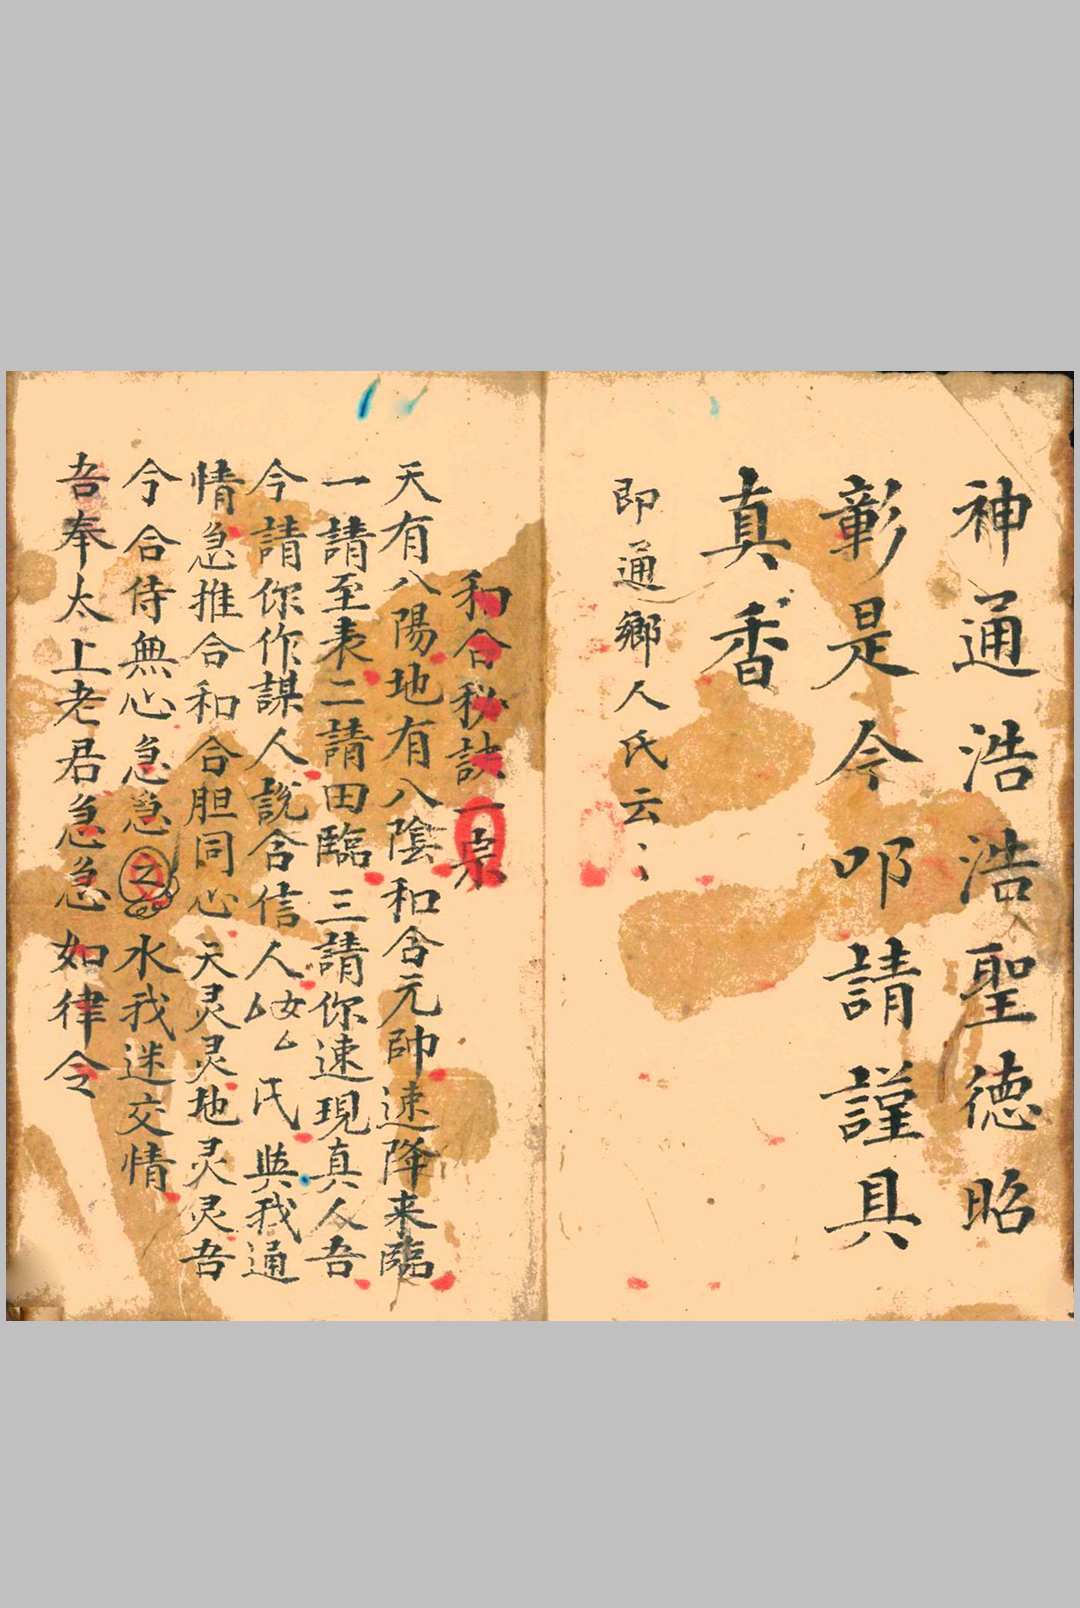 神通浩浩聖德昭
彰是今叩請謹具
真香
即通鄉人氏云
和合秘訣一宗
天有八陽地有八陰和合元帥速降来臨
一請至表二請田臨三請你速現真人吾
今請你作謀人說合信人女氏與我通
情急推合和合胆同心天灵灵地灵灵吾
今合侍無心急急水我迷交情
吾奉太上老君急急如律令